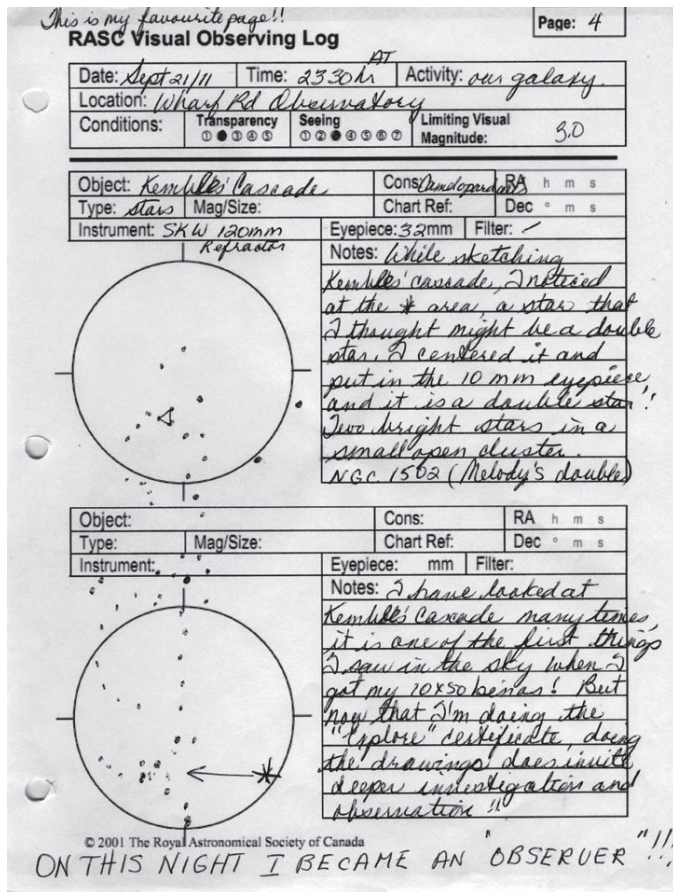 This is my favourite page!!
Page: 4
RASC Visual Observing Log
Date: Sept 21/11 Time: 2330hr AT Activity: our galaxy.
Location: Wharf Rd Observatory
Conditions: Transparency Seeing Limiting Visual
① ● ③ ④ ⑤ ① ② ● ④ ⑤ ⑥ ⑦ Magnitude: 3.0
Object: Kembles' Cascade Cons: Camelopardalis RA h m s
Type: stars Mag/Size: Chart Ref: Dec ° m s
Instrument: SKW 120mm Eyepiece: 32mm Filter: /
Refractor
Notes: While sketching
Kembles' cascade, I noticed
at the * area, a star that
I thought might be a double
star. I centered it and
put in the 10 mm eyepiece,
and it is a double star!
Two bright stars in a
small open cluster.
NGC 1502 (Melody's double)
Object: Cons: RA h m s
Type: Mag/Size: Chart Ref: Dec ° m s
Instrument: Eyepiece: mm Filter:
Notes: I have looked at
Kembles' Cascade many times,
it is one of the first things
I saw in the sky when I
got my 10x50 binos! But
now that I'm doing the
"Explore" certificate, doing
the drawings does invite
deeper investigation and
observation!!
© 2001 The Royal Astronomical Society of Canada
ON THIS NIGHT I BECAME AN "OBSERVER"!!!